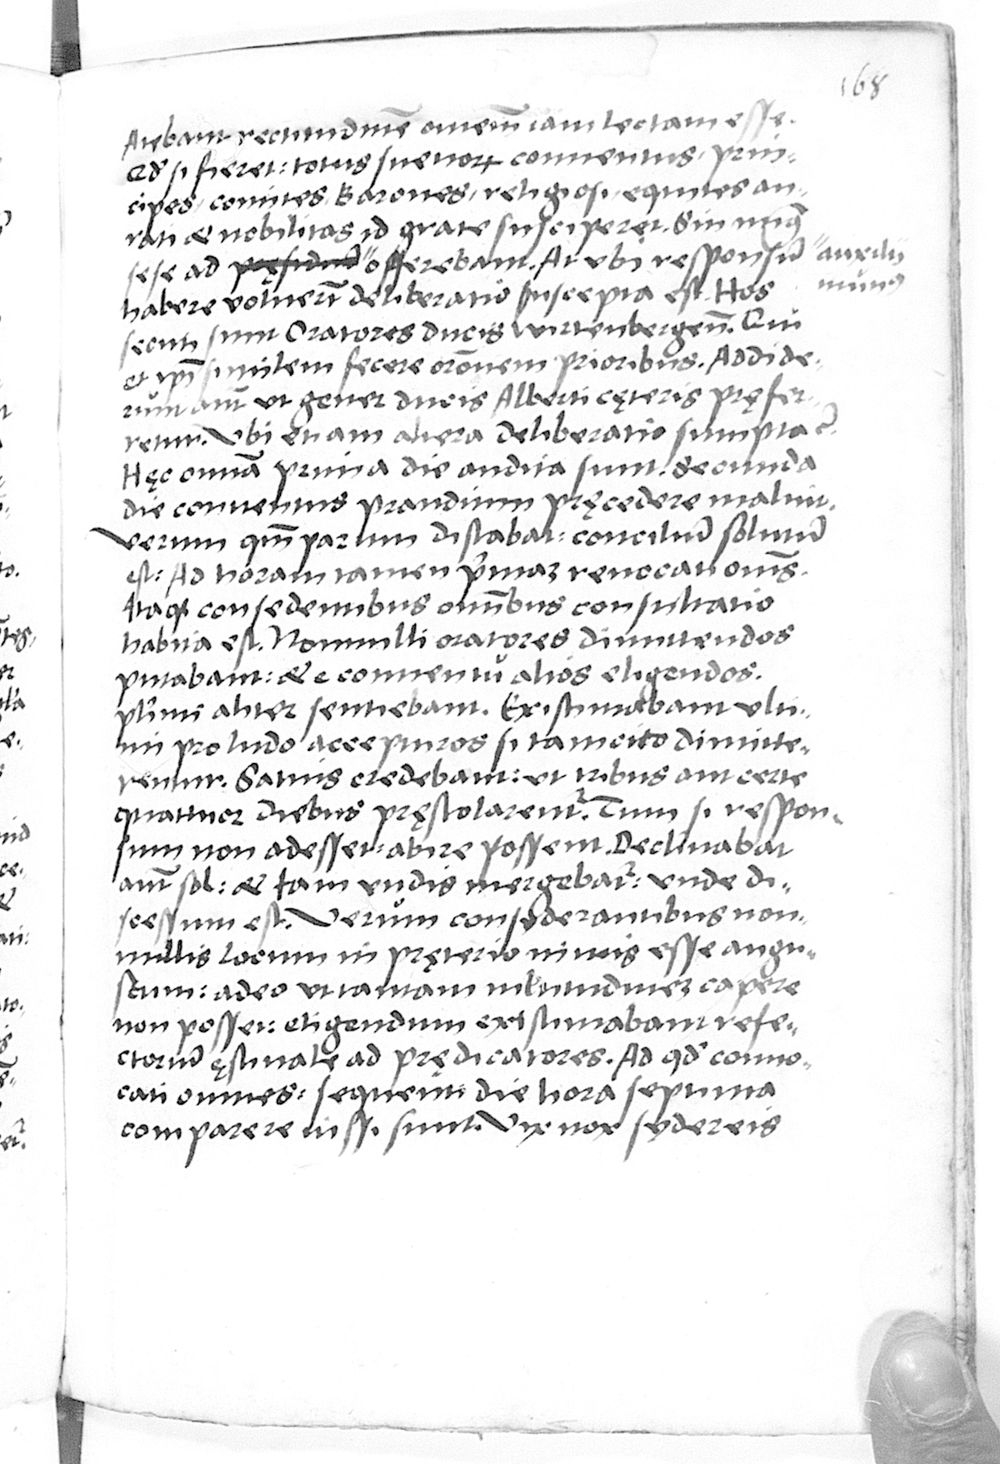 168
Aiebant rectitudinē omnem̄ iam lectam esse.
Qd̕ si fieret: totus sueuoꝝ conuentus, prin-
cipes, comites, Barones, religiosi, equites au-
rati & nobilitas id grate susciperet. Sin
sese ad offerebant. At ubi responsū auxilij
habere voluerūt deliberatio suscepta est. Hos munꝰ
secuti sunt Oratores ducis wirtenbergeñ. Qui
et ip̄i similem fecere orōnem prioribus. Addide-
runt aūt vt gener ducis Alberti cęteris pręfer-
retur. Vbi etiam altera deliberatio sumpta ē.
Hęc omnia prima die audita sunt. Secunda
die conuentus prandium pręcedere maluit.
Verum qm̄ parum distabat: conciliū solutū
est: Ad horam tamen p̄maꝫ reuocati oīms.
Itaqꝫ consedentibus omībus consultatio
habita est. Nonnulli oratores dimittendos
putabant: & e conuentu alios eligendos.
pl̄imi aliter sentiebant. Existimabant vlti-
mi pro ludo accepturos si tam cito dimitte-
rentur. Satius credebant: vt tribus aut certe
quattuor diebus pręstolarent᷑. Tum si respon-
sum non adesset: abire possent. Declinabat
aūt sol: & iam vndis mergebat᷑: vnde di-
scessum est. Verum consyderantibus non-
nullis locum in pręterio nimis esse angu-
stum: adeo vt tantam multitudineꝫ capere
non posset: eligendum existimabant refe-
ctoriū ęstiuale ad prędicatores. Ad qd̕ conuo-
cati omnes: sequenti die hora septima
comparere iussi sunt. Vix nox sydereis